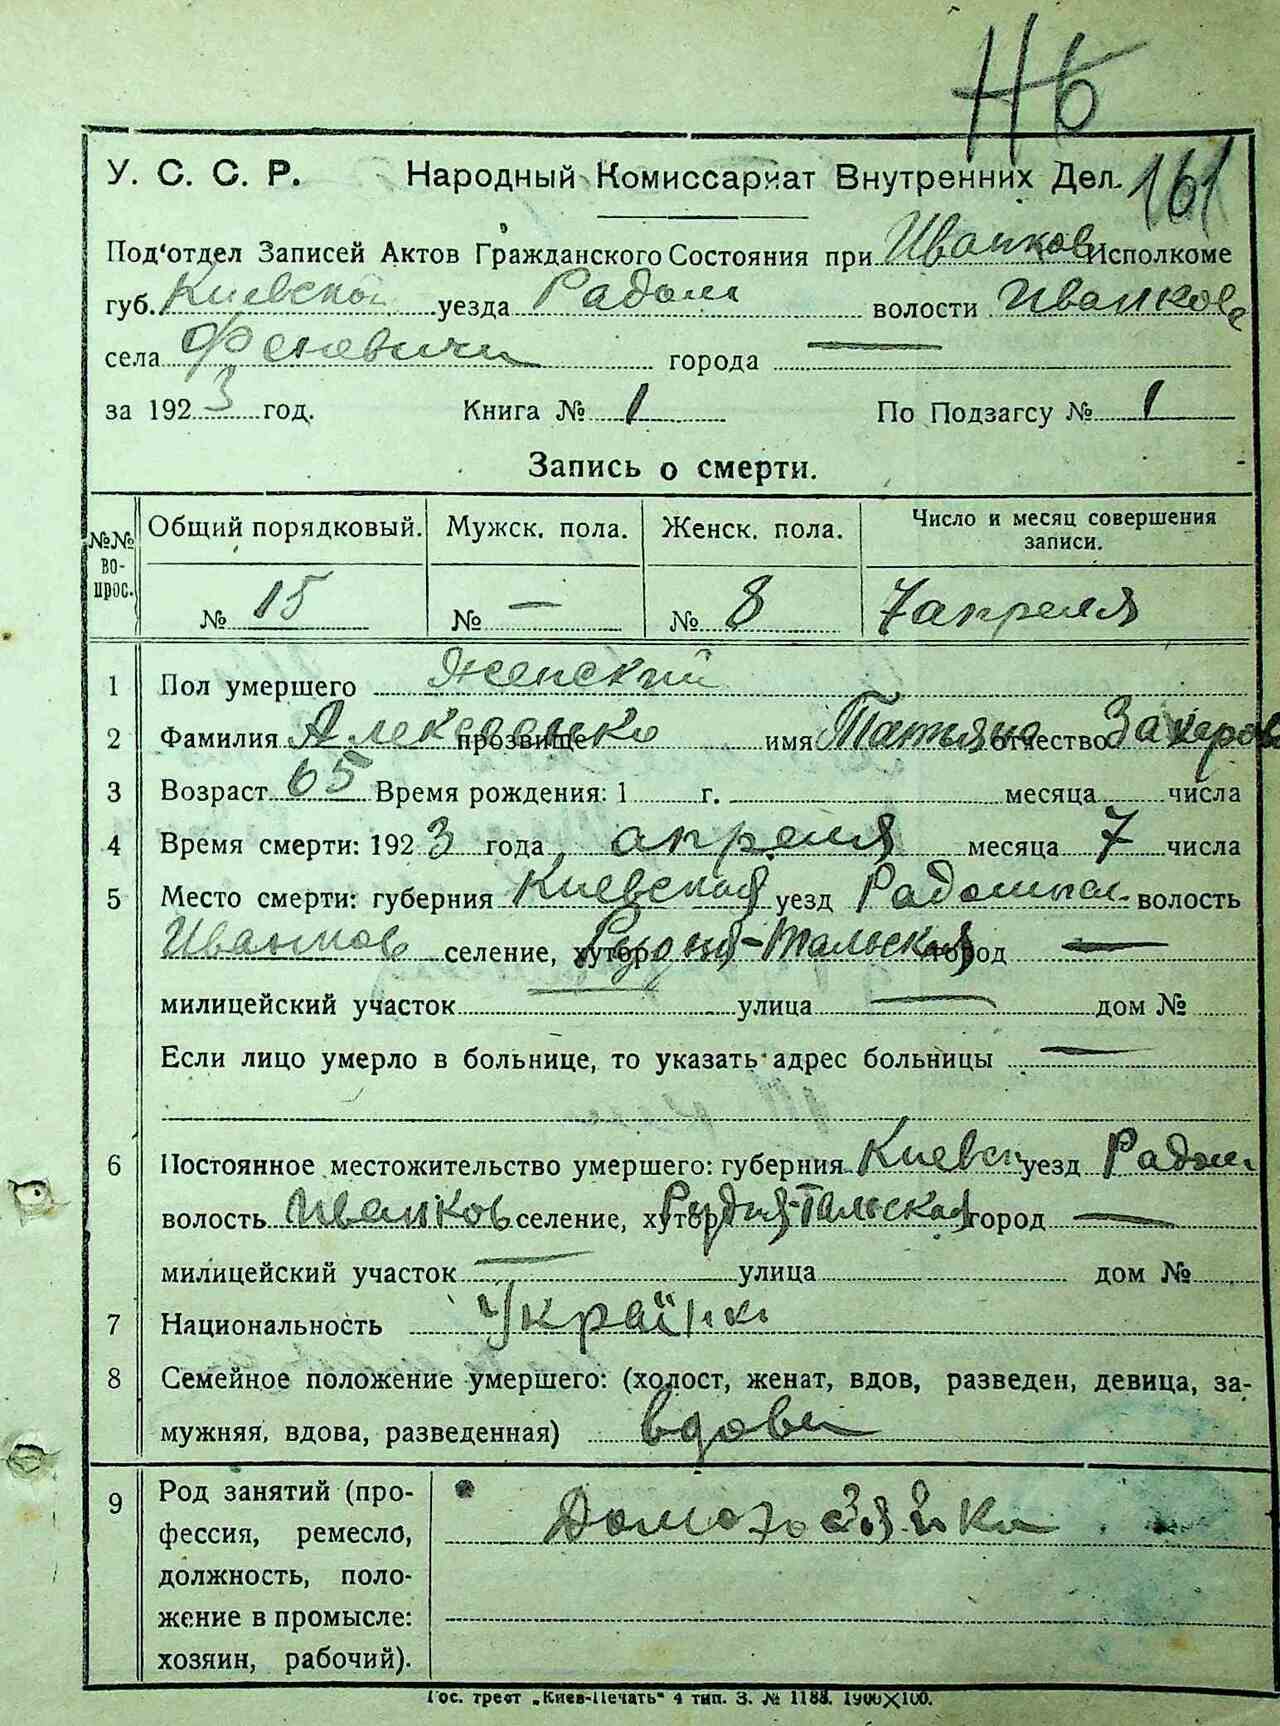 Нб
У. С. С. Р. Народный Комиссариат Внутренних Дел. 161
Под'отдел Записей Актов Гражданского Состояния при Иванков Исполкоме
губ. Киевской уезда Радом волости Иванков
села Феневичи города —
за 1923 год. Книга № 1 По Подзагсу № 1
Запись о смерти.
№№ вопрос. Общий порядковый. Мужск. пола. Женск. пола. Число и месяц совершения записи.
№ 15 № — № 8 7 апреля
1 Пол умершего Женский
2 Фамилия прозвище имя Татьяна отчество Захаров
3 Возраст 65 Время рождения: 1 г. месяца числа
4 Время смерти: 1923 года апреля месяца 7 числа
5 Место смерти: губерния Киевская уезд Радомысл. волость
Иванков селение, хутор Рудня-Тальская город —
милицейский участок улица — дом №
Если лицо умерло в больнице, то указать адрес больницы —
6 Постоянное местожительство умершего: губерния Киевск уезд Радом
волость Иванков селение, хутор Рудня-Тальская город —
милицейский участок — улица дом №
7 Национальность Украïнка
8 Семейное положение умершего: (холост, женат, вдов, разведен, девица, за-
мужняя, вдова, разведенная) вдова
9 Род занятий (про-
фессия, ремесло,
должность, поло-
жение в промысле:
хозяин, рабочий).
Домохозяйка
Гос. трест „Киев-Печать" 4 тип. З. № 1188. 1900×100.